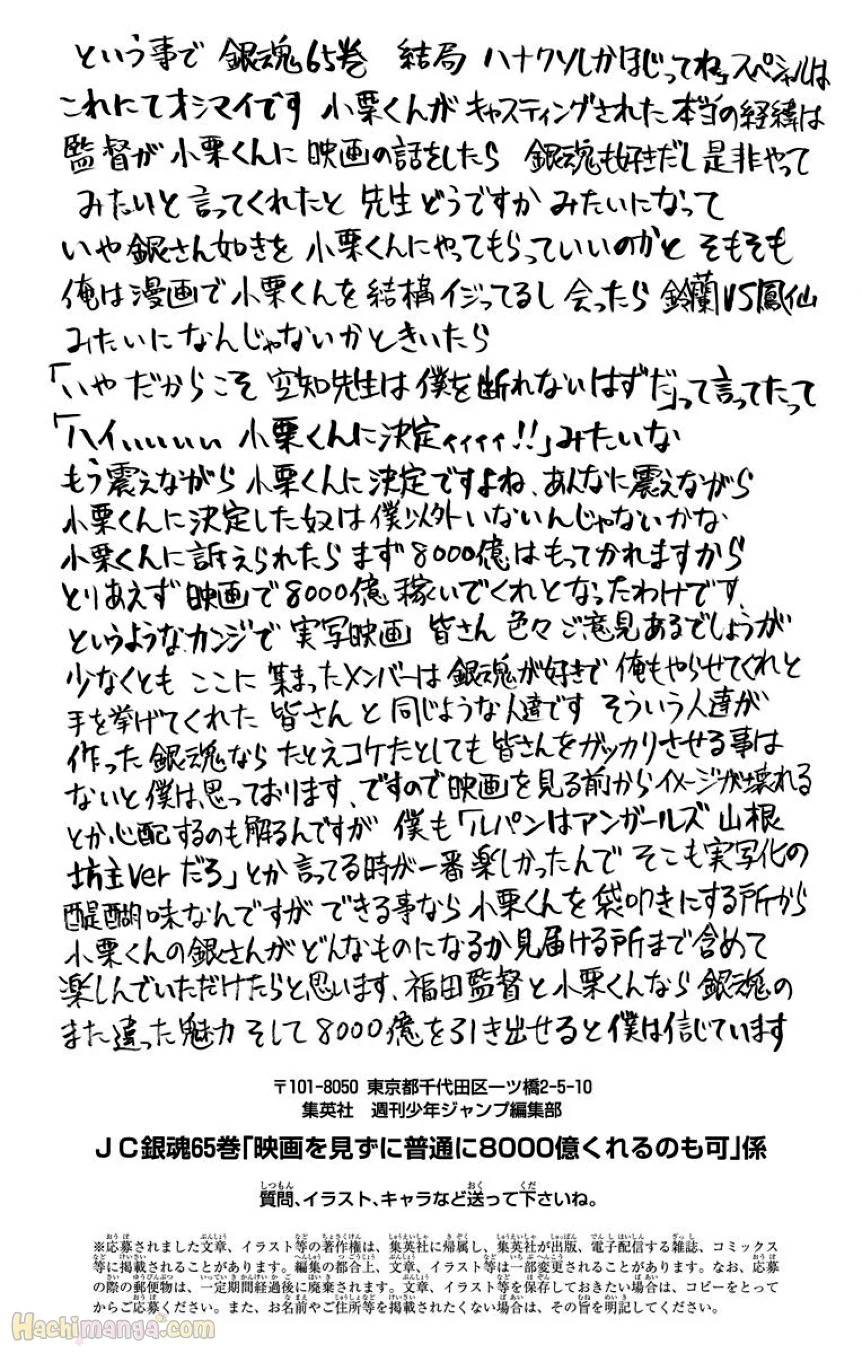 という事で 銀魂65巻 結局 ハナクソしかほじってねェスペシャルは
これにてオシマイです 小栗くんが キャスティングされた 本当の経緯は
監督が 小栗くんに 映画の話をしたら 銀魂も好きだし 是非やって
みたいと 言ってくれたと 先生どうですか みたいになって
いや銀さん如きを 小栗くんにやってもらっていいのかと そもそも
俺は漫画で小栗くんを結構イジってるし 会ったら 鈴蘭VS鳳仙
みたいになんじゃないかときいたら
「いや だからこそ 空知先生は僕を断れないはずだ」って言ってたって
「ハイぃぃぃぃぃ 小栗くんに決定ィィィィ!!」みたいな
もう震えながら 小栗くんに決定ですよね、あんなに震えながら
小栗くんに決定した奴は僕以外いないんじゃないかな
小栗くんに訴えられたら まず8000億はもってかれますから
とりあえず映画で8000億稼いでくれとなったわけです、
というようなカンジで 実写映画 皆さん 色々ご意見あるでしょうが
少なくとも ここに 集まったメンバーは 銀魂が好きで 俺もやらせてくれと
手を挙げてくれた 皆さんと 同じような人達です そういう人達が
作った銀魂なら たとえコケたとしても皆さんをガッカリさせる事は
ないと僕は思っております、ですので映画を見る前からイメージが壊れる
とか心配するのも解るんですが 僕も「ルパンはアンガールズ 山根
坊主verだろ」とか言ってる時が一番楽しかったんで そこも実写化の
醍醐味なんですが できる事なら 小栗くんを袋叩きにする所から
小栗くんの銀さんが どんなものになるか見届ける所まで含めて
楽しんでいただけたらと思います、福田監督と小栗くんなら 銀魂の
また違った魅力 そして8000億を引き出せると僕は信じています
〒101-8050 東京都千代田区一ツ橋2-5-10
集英社 週刊少年ジャンプ編集部
JC銀魂65巻「映画を見ずに普通に8000億くれるのも可」係
質問、イラスト、キャラなど送って下さいね。
※応募されました文章、イラスト等の著作権は、集英社に帰属し、集英社が出版、電子配信する雑誌、コミックス
等に掲載されることがあります。編集の都合上、文章、イラスト等は一部変更されることがあります。なお、応募
の際の郵便物は、一定期間経過後に廃棄されます。文章、イラスト等を保存しておきたい場合は、コピーをとって
からご応募ください。また、お名前やご住所等を掲載されたくない場合は、その旨を明記してください。
Hachimanga.com